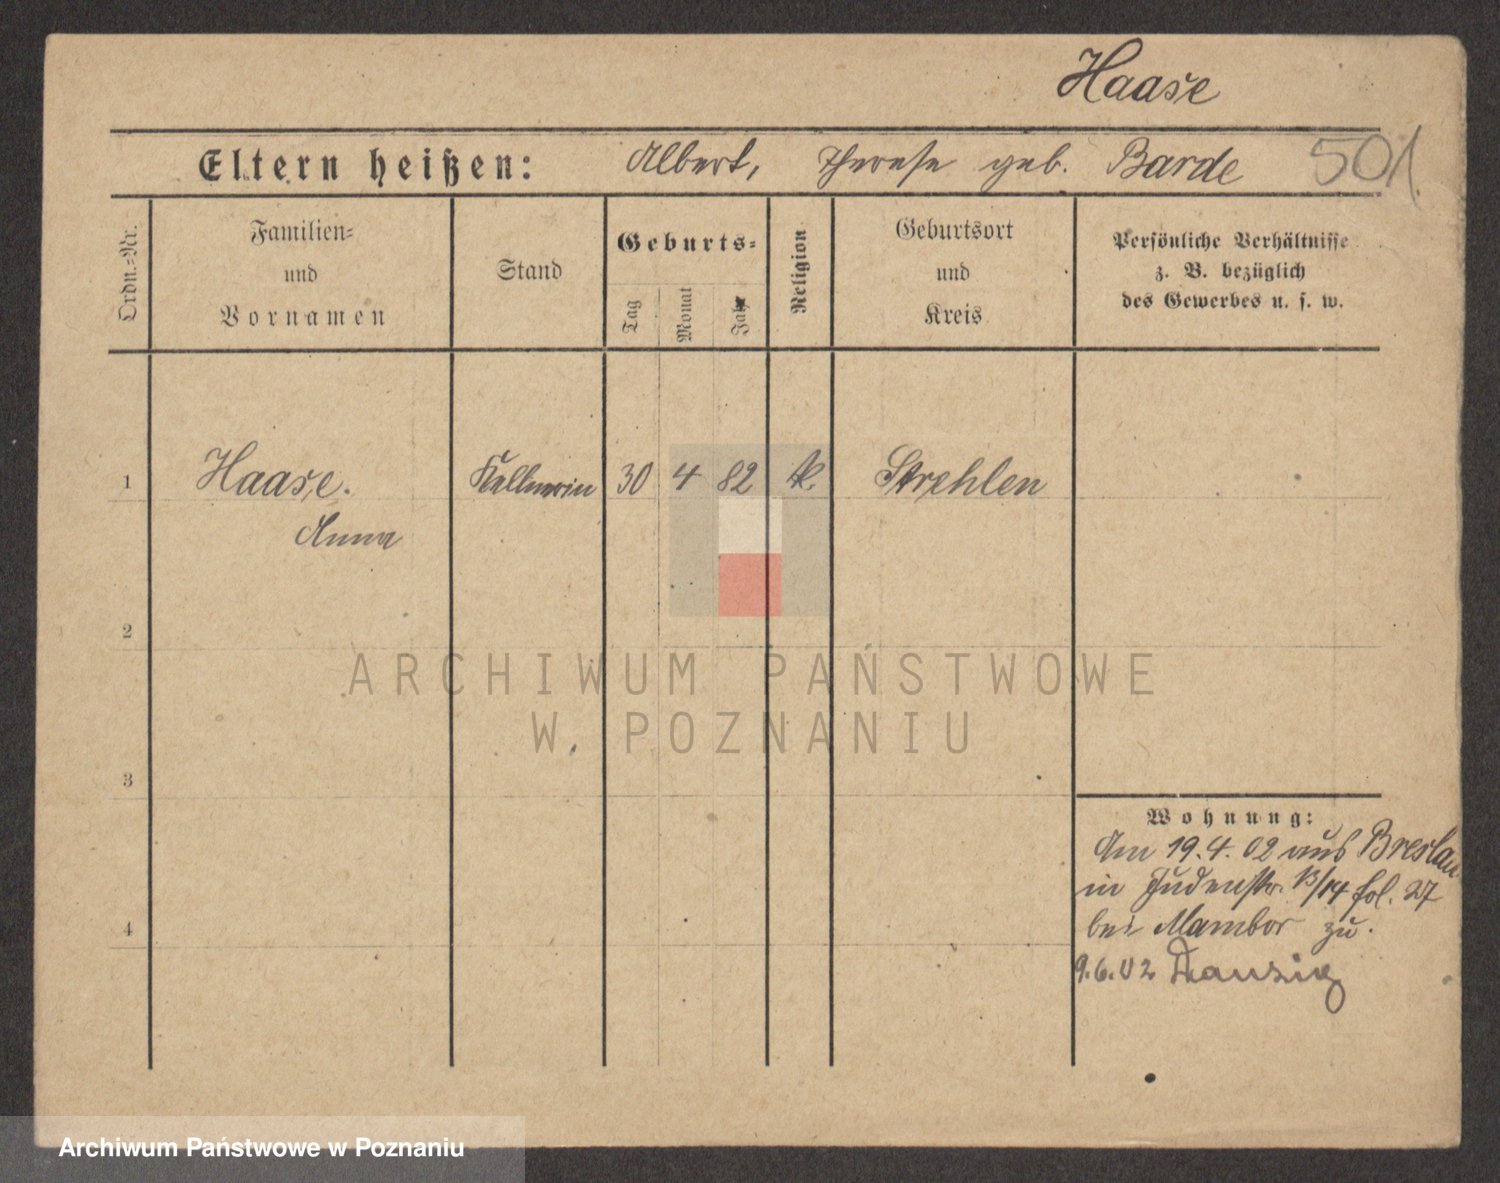 Haase
Eltern heißen: Albert, Therese geb. Barde 501
Ordn.=Nr.
Familien=
und
Vornamen
Stand
Geburts=
Tag
Monat
Jahr
Religion
Geburtsort
und
Kreis
Persönliche Verhältnisse
z. B. bezüglich
des Gewerbes u. s. w.
1 Haase. Kellnerin 30 4 82 k. Strehlen
Anna
2
ARCHIWUM PAŃSTWOWE
W POZNANIU
3
Wohnung:
Am 19.4.02 aus Breslau
in Judenstr. 13/14 fol. 27
4 bei Mambor zu.
9.6.02 Danzig
Archiwum Państwowe w Poznaniu